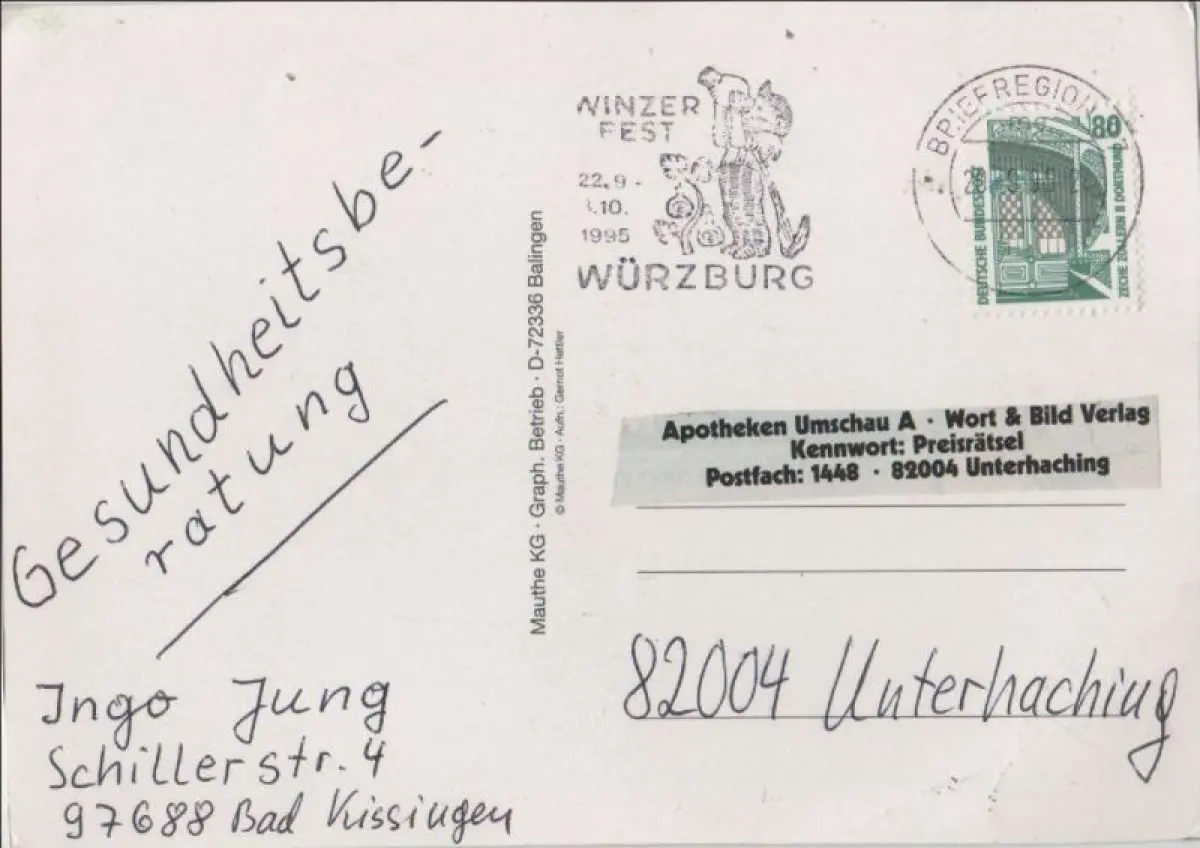 Gesundheitsbe-
ratung
Ingo Jung
Schillerstr. 4
97688 Bad Kissingen
Mauthe KG · Graph. Betrieb · D-72336 Balingen
© Mauthe KG · Aufn.: Gernot Hettler
WINZER
FEST
22.9 -
.10.
1995
WÜRZBURG
BRIEFREGION
80
DEUTSCHE BUNDESPOST
ZECHE ZOLLERN II DORTMUND
Apotheken Umschau A · Wort & Bild Verlag
Kennwort: Preisrätsel
Postfach: 1448 · 82004 Unterhaching
82004 Unterhaching